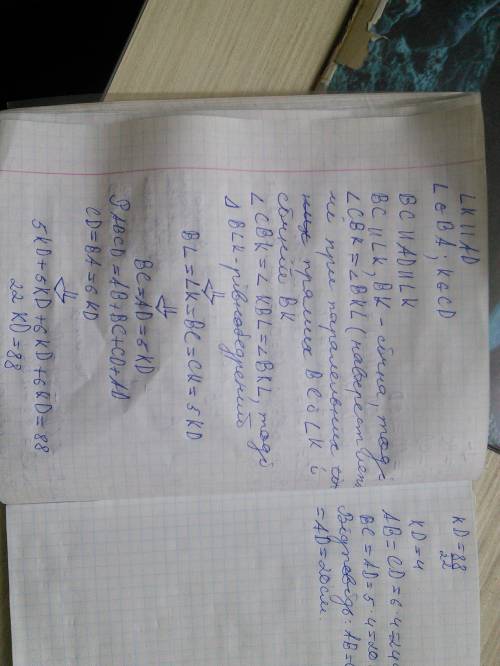 LK || AD
L ∈ BA; K ∈ CD
BC || AD || LK
BC || LK, BK - січна, тоді
∠CBK = ∠BKL (навхрест
ні при паралельних
них прямих BC і LK і
січній BK
∠CBK = ∠KBL = ∠BKL, тоді
Δ BLK - рівнобедрений
⇓
BL = LK = BC = CK = 5 KD
⇓
BC = AD = 5 KD
P ABCD = AB + BC + CD + AD
CD = BA = 6 KD
⇓
5KD + 5KD + 6KD + 6KD = 88
22 KD = 88
KD = 88/22
KD = 4
AB = CD = 6·4 = 24
BC = AD = 5·4 = 20
Відповідь: AB =
= AD = 20 см.